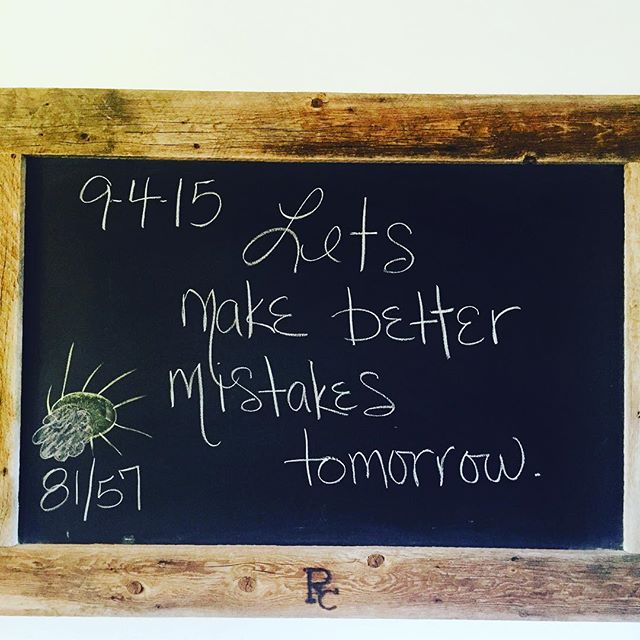 9-4-15
Lets
make better
mistakes
tomorrow.
81/57
PC